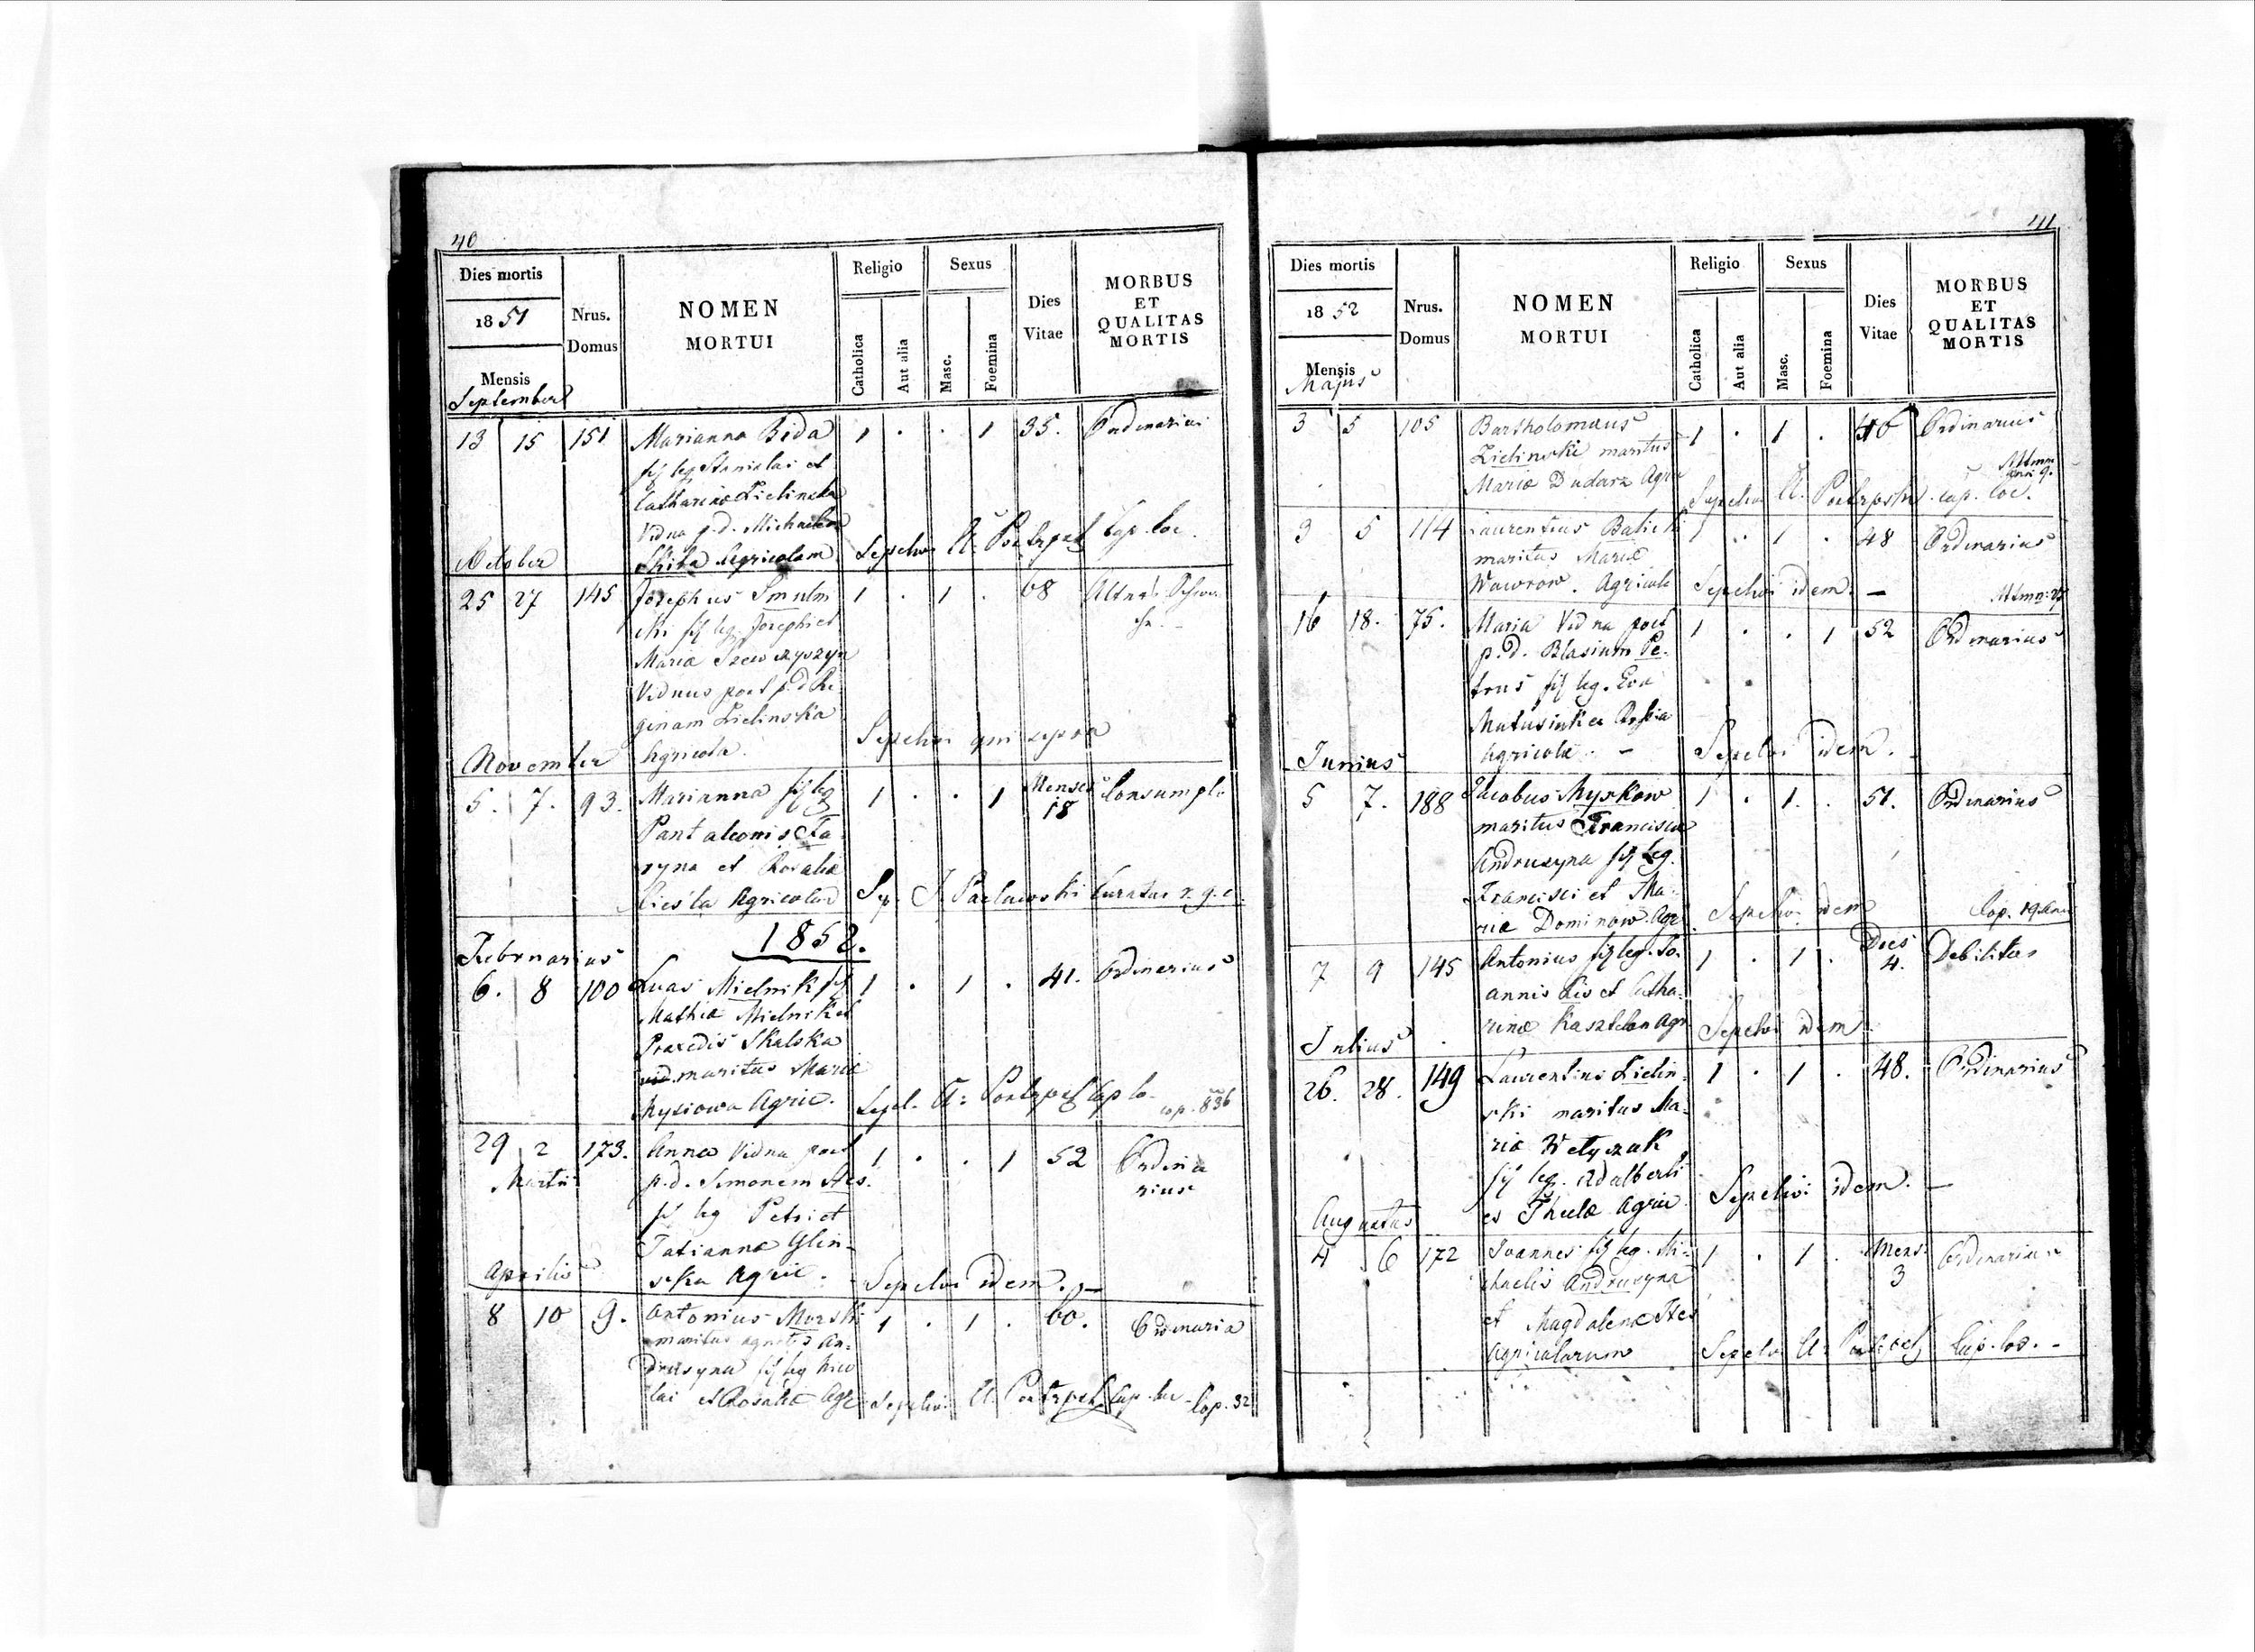 40
Dies mortis
1851
Mensis
September
Nrus.
Domus
NOMEN
MORTUI
Religio
Catholica
Aut alia
Sexus
Masc.
Foemina
Dies
Vitae
MORBUS
ET
QUALITAS
MORTIS
13 15 151 Marianna Bida 1 . . 1 35. Ordinarius
fil leg Stanislai et
Catharina Zielinska
Vidua p.d. Michaelem
October Skiba Agricolam Sepelivi A. Cap. loc.
25 27 145 Josephus Smulm 1 . 1 . 68
cki fil leg. Josephi et
Maria Szewczyszyn
Viduus post p.d. Re
ginam Zielinska
November Agricola. Sepelivi qui supra
5. 7. 93. Marianna fil leg 1 . . 1 Menses 18
Pantaleonis Ta
ryna et Rosalia
Agricolar Sep. J. Curatus
1852.
Februarius
6. 8 100 Lucas Mielnik fil 1 . 1 . 41. Ordinarius
Mathia Mielnik et
Praxedis Skalska
maritus Maria
Agric. Sepel. A: Cap lo. cop. 836
29 2 173. Anna Vidua post 1 . . 1 52 Ordina
Martii p.d. Simonem Hes. rius
fil leg Petri et
Tatianna Glin-
Aprilis ska Agric. Sepelivi idem. —
8 10 9. Antonius Morski 1 . 1 . 60. Ordinaria
maritus Agnetis An-
drusyna fil leg
lai et Rosalia Agr. Sepelivi A. Cap. loc. Cop. 32
41
Dies mortis
1852
Mensis
Majus
Nrus.
Domus
NOMEN
MORTUI
Religio
Catholica
Aut alia
Sexus
Masc.
Foemina
Dies
Vitae
MORBUS
ET
QUALITAS
MORTIS
3 5 105 Bartholomaus 1 . 1 . 46 Ordinarius
Zielinski maritus
Maria Dudarz Agr. Sepelivi A. cap. loc.
3 5 114 Laurentius Balicki 1 . 1 . 48 Ordinarius
maritus Maria
Wawrow. Agricola Sepelivi idem. —
16 18. 75. Maria Vidua post 1 . . 1 52 Ordinarius
p.d. Blasium Pe-
trus fil leg. Eva
Agricola. — Sepelivi idem.
Junius
5 7. 188 Jacobus Myskow 1 . 1. . 51. Ordinarius
maritus Francisca
Andrusyna fil leg.
Francisci et Ma-
ria Dominow. Agr. Sepelivi idem Cop.
7 9 145 Antonius fil leg. Jo- 1 . 1 . Dies 4. Debilitas
annis Lis et Catha-
rina Kasztelan Agr Sepelivi idem
Julius
26. 28. 149 Laurentius Zielin- 1 . 1 . 48. Ordinarius
ski maritus Ma-
ria Wetyczak
fil leg. Adalberti
et Thecla Agric. Sepelivi idem. —
Augustus
4 6 172 Joannes fil leg. Mi- 1 . 1 . Mens. 3 Ordinarius
chaelis Andrusyna
et Magdalena Hes
Agricolarum Sepelivi A: Cap. loc. -